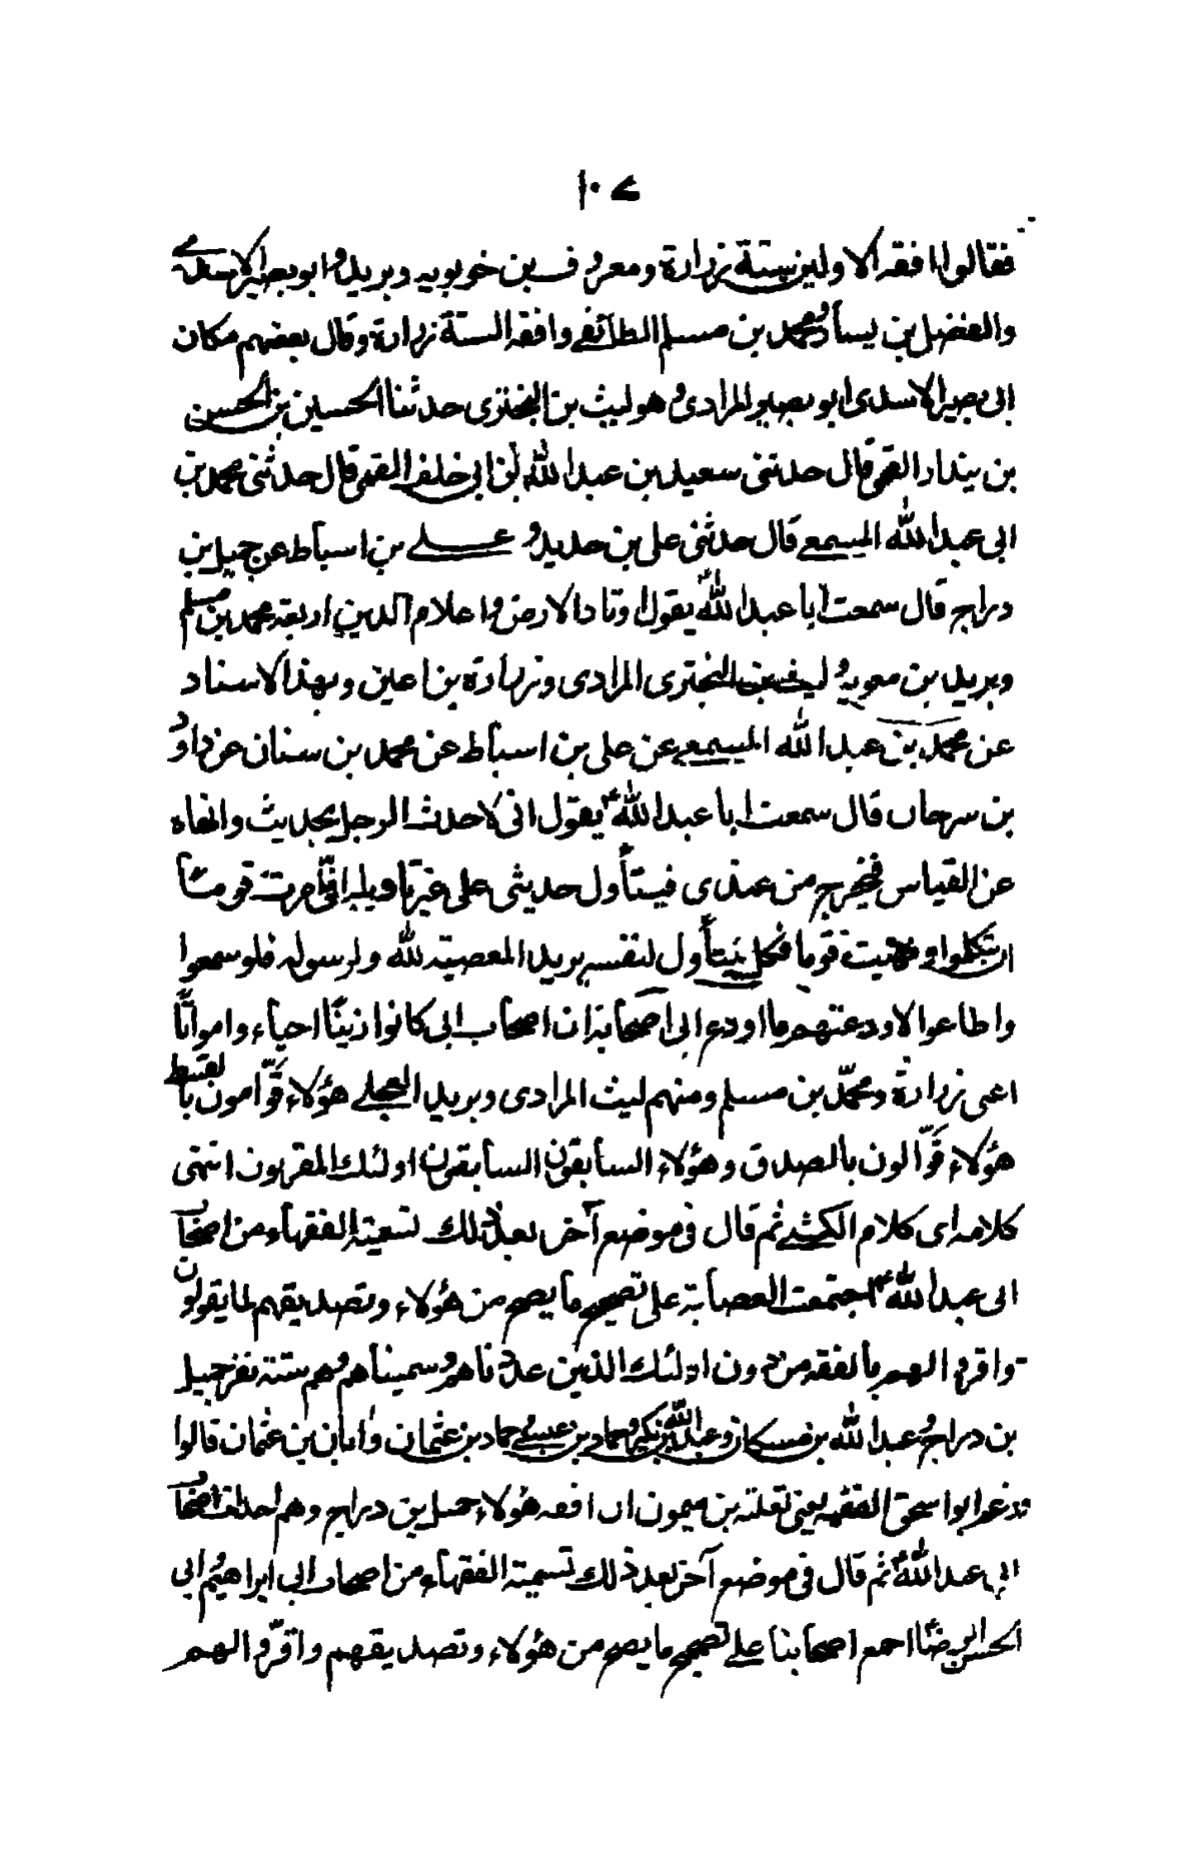 ١٠٧
فقالوا افقه الاولين ستة زرارة ومعروف بن خربوبيه وبريد وابوبصير الاسدى
والفضل بن يسار ومحمد بن مسلم الطائفى وافقه الستة زرارة وقال بعضهم مكان
ابى بصير الاسدى ابو بصير المرادى وهو ليث بن البخترى حدثنا الحسين بن الحسن
بن بندار القمى قال حدثنى سعيد بن عبد الله بن ابى خلف القمى قال حدثنى محمد بن
ابى عبد الله المسمعى قال حدثنى على بن حديد و على بن اسباط عن جميل بن
دراج قال سمعت ابا عبد الله ع يقول اوتاد الارض واعلام الدين اربعة محمد بن مسلم
وبريد بن معوية وليث بن البخترى المرادى وزرارة بن اعين وبهذا الاسناد
عن محمد بن عبد الله المسمعى عن على بن اسباط عن محمد بن سنان عن داود
بن سرحان قال سمعت ابا عبد الله ع يقول انى لاحدث الرجل بحديث وانهاه
عن القياس فيخرج من عندى فيتأول حديثى على غير تاويله انى امرت قوما
ان يتكلموا ونهيت قوما فكل يتأول لنفسه يريد المعصية لله ولرسوله فلو سمعوا
واطاعوا لاودعتهم ما اودع ابى اصحابه ان اصحاب ابى كانوا زينًا احياء وامواتًا
اعنى زرارة ومحمّد بن مسلم ومنهم ليث المرادى وبريد العجلى هؤلاء قوّامون بالقسط
هؤلاء قوّالون بالصدق وهؤلاء السابقون السابقون اولئك المقربون انتهى
كلامه اى كلام الكشى ثم قال فى موضع آخر بعد ذلك تسمية الفقهاء من اصحاب
ابى عبد الله ع اجتمعت العصابة على تصحيح ما يصح من هؤلاء وتصديقهم لما يقولون
واقروا لهم بالفقه من دون اولئك الذين عددناهم وسميناهم وهم ستة نفر جميل
بن دراج وعبد الله بن مسكان وعبد الله بن بكير وحماد بن عيسى وحماد بن عثمان وابان بن عثمان قالوا
وزعم ابو اسحق الفقيه يعنى ثعلبة بن ميمون ان افقه هؤلاء جميل بن دراج وهم احداث اصحاب
ابى عبد الله ع ثم قال فى موضع آخر بعد ذلك تسمية الفقهاء من اصحاب ابى ابراهيم وابى
الحسن الرضا اجمع اصحابنا على تصحيح ما يصح من هؤلاء وتصديقهم واقرّوا لهم